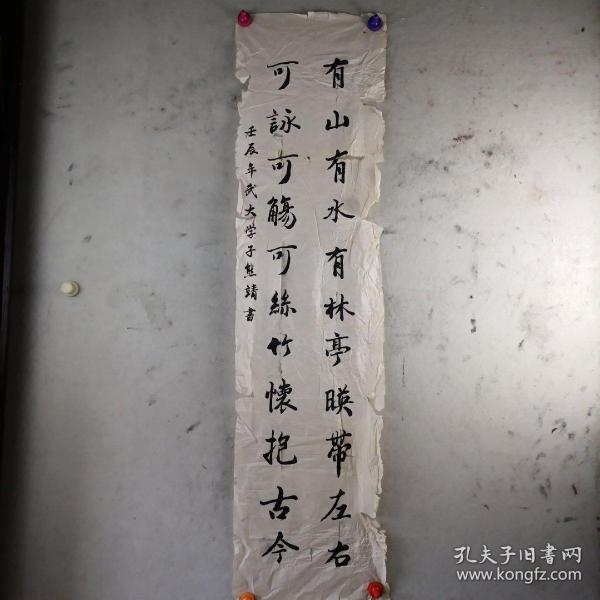 有山有水有林亭暎帶左右
可詠可觴可絲竹懷抱古今
壬辰年武大学子熊靖書
孔夫子旧書网
www.kongfz.com